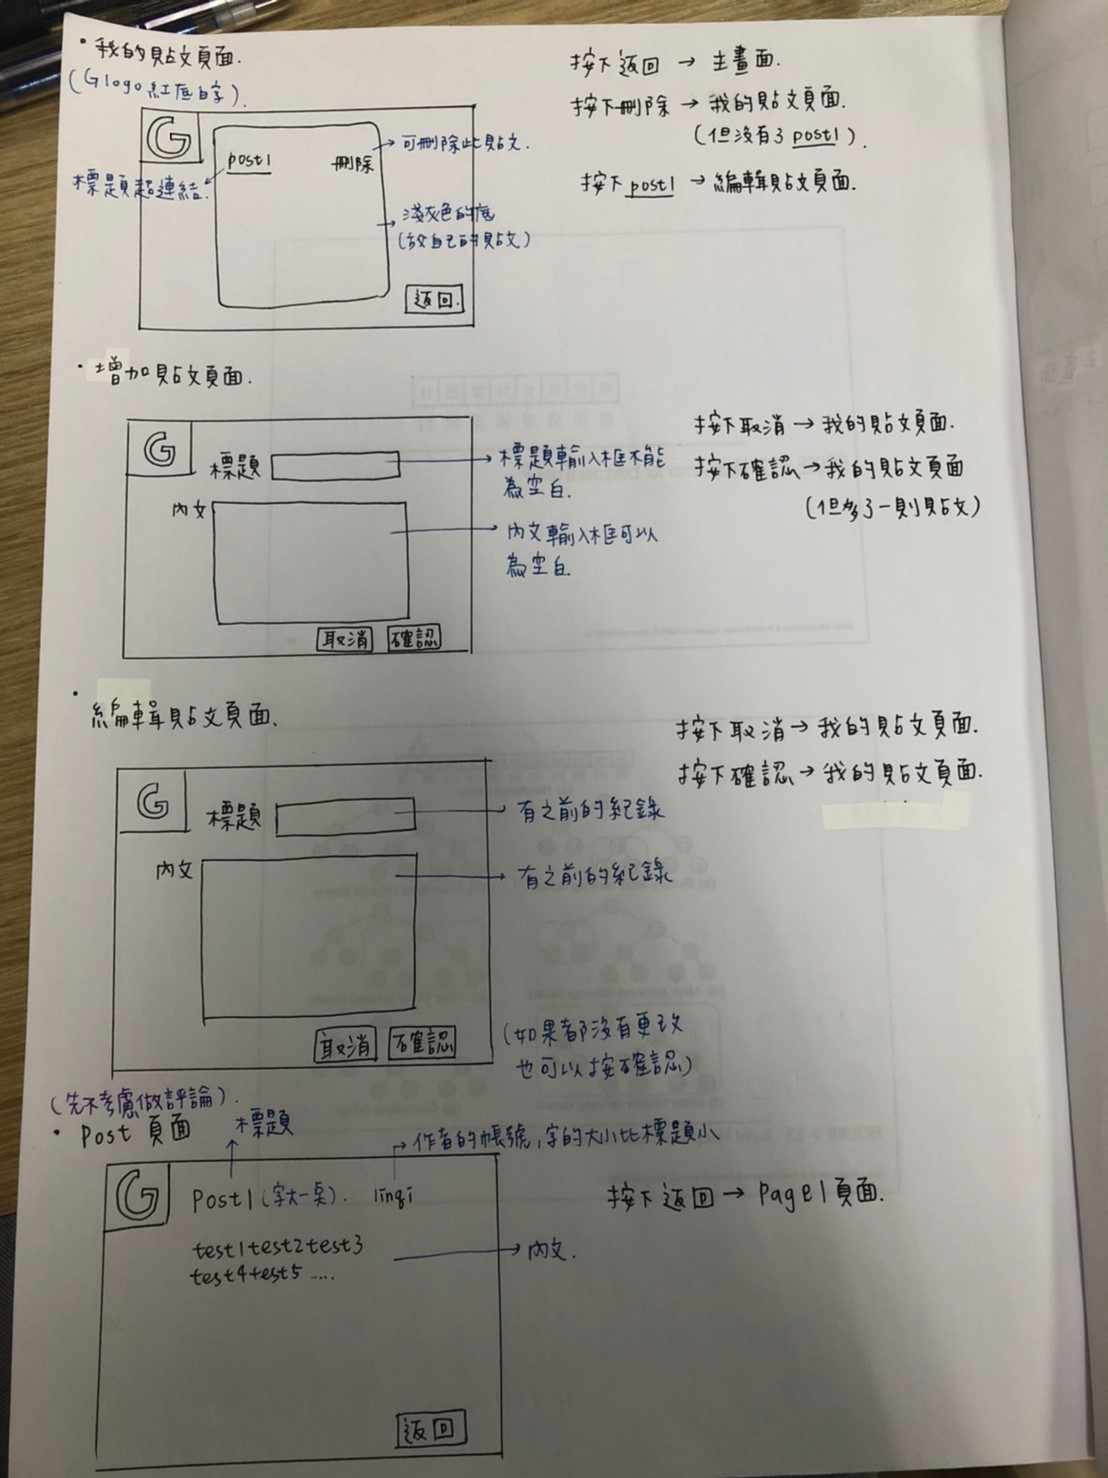 ・我的貼文頁面.
(G logo 紅底白字).
G
post1 刪除
→可刪除此貼文.
標題超連結.
→淺灰色的底
(放自己的貼文)
返回.
按下返回 → 主畫面.
按下刪除 → 我的貼文頁面.
(但沒有了 post1).
按下 post1 → 編輯貼文頁面.
・增加貼文頁面.
G
標題
→標題輸入框不能
為空白.
內文
→內文輸入框可以
為空白.
取消 確認
按下取消 → 我的貼文頁面.
按下確認 → 我的貼文頁面
(但多了一則貼文)
・編輯貼文頁面.
G
標題
→有之前的紀錄
內文
→有之前的紀錄
取消 確認
(如果都沒有更改
也可以按確認)
按下取消 → 我的貼文頁面.
按下確認 → 我的貼文頁面.
(先不考慮做評論).
・Post 頁面
標題
→作者的帳號,字的大小比標題小
G
Post1 (字大一點). lingi
test1test2test3
test4test5 .....
→內文.
返回
按下返回 → Page1頁面.